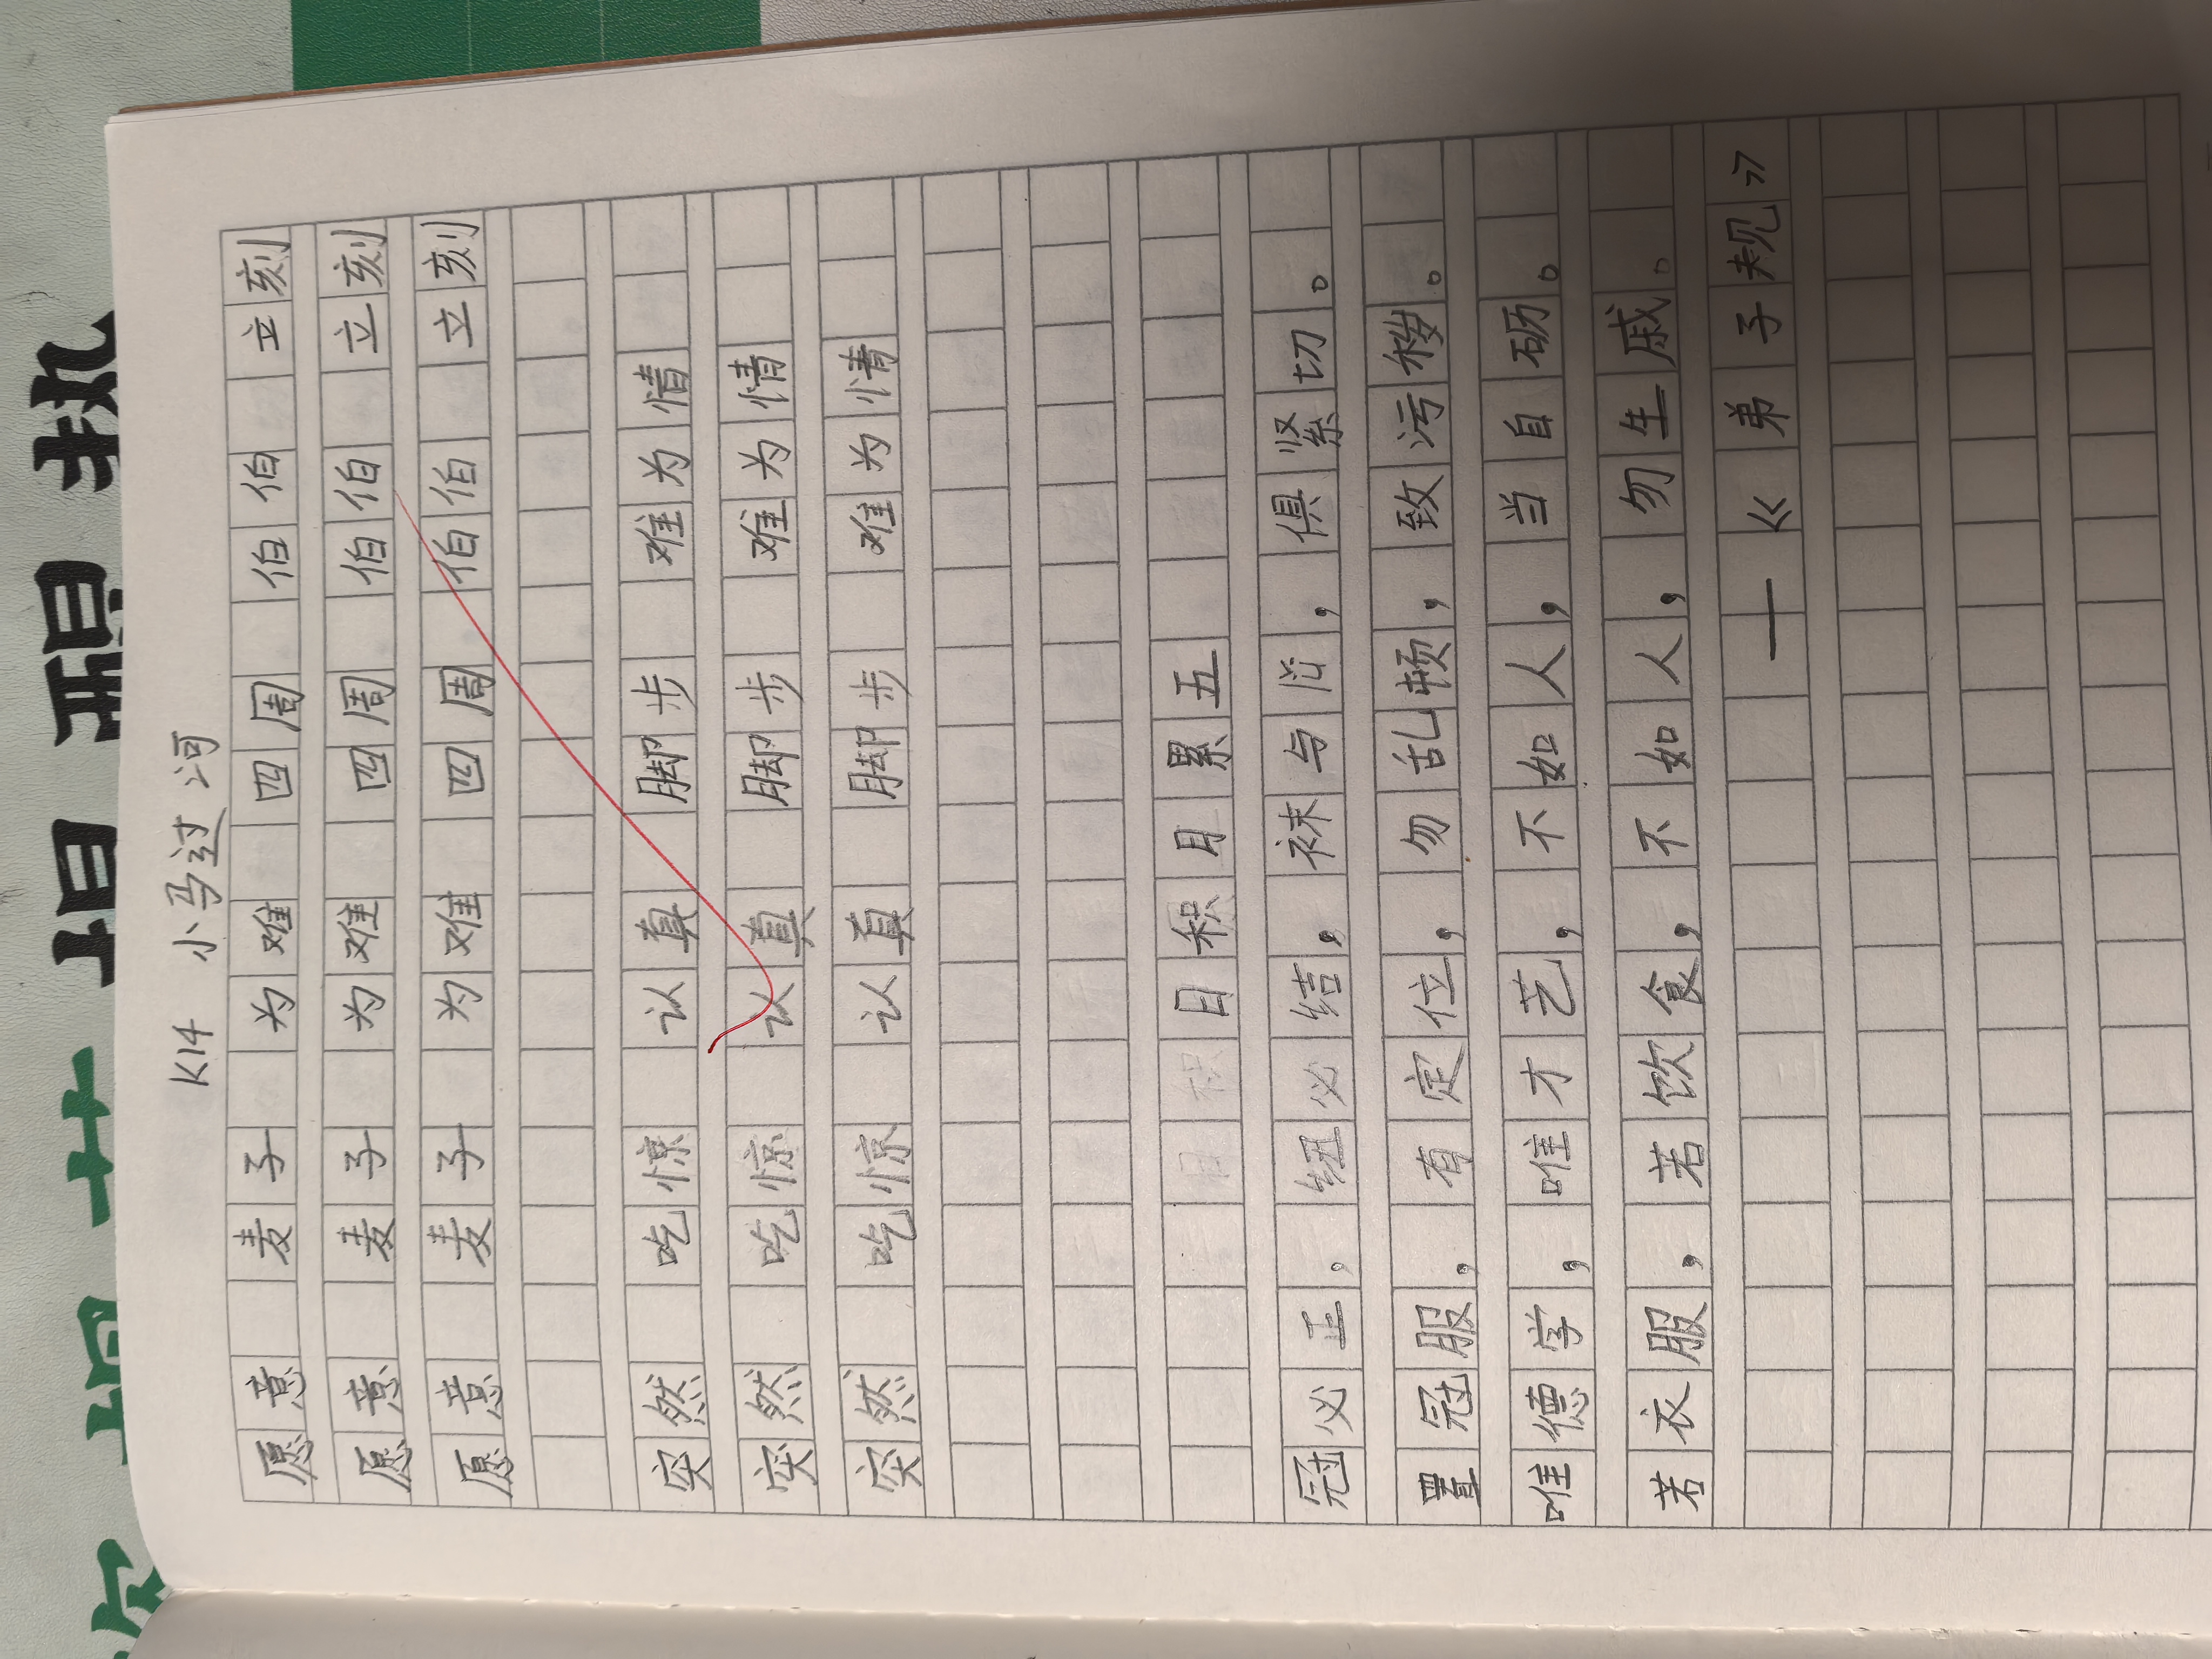 K14 小马过河
愿意 麦子 为难 四周 伯伯 立刻
愿意 麦子 为难 四周 伯伯 立刻
愿意 麦子 为难 四周 伯伯 立刻
突然 吃惊 认真 脚步 难为情
突然 吃惊 认真 脚步 难为情
突然 吃惊 认真 脚步 难为情
日积月累五
冠必正,纽必结,袜与,俱紧切。
置冠服,有定位,勿乱顿,致污秽。
唯德学,唯才艺,不如人,当自砺。
若衣服,若饮食,不如人,勿生戚。
——《弟子规》